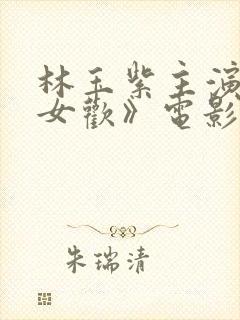 林玉紫主演
女歡》電影
朱瑞清